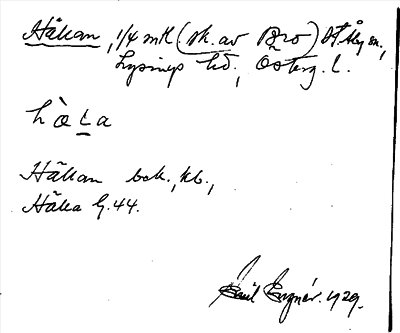 Hållan, 1/4 mtl (sk. av Bro) St. Åby sn.,
Lysings hd., Österg. l.
hàla
Hållan bok., kb.,
Hålla G. 44.
Emil Engnér. 1929.